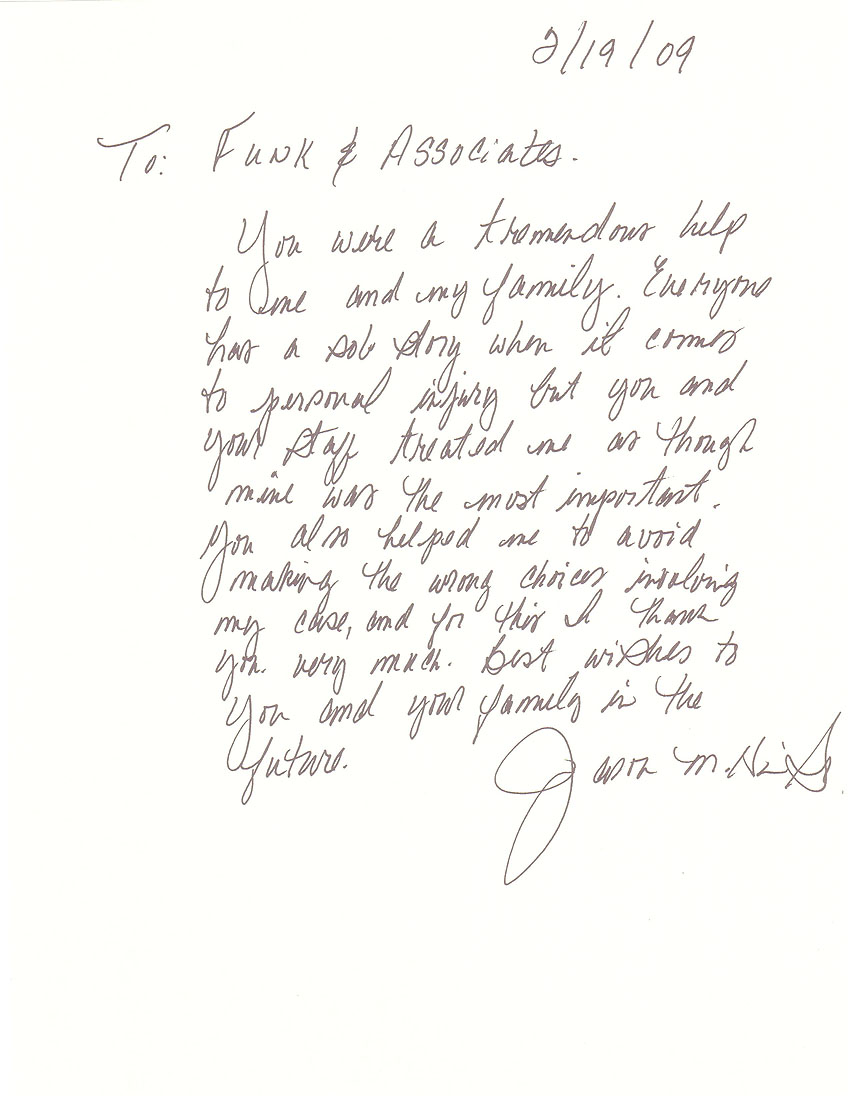 2/19/09
To: Funk & Associates.
You were a tremendous help
to me and my family. Everyone
has a sob story when it comes
to personal injury but you and
your staff treated me as though
mine was the most important.
You also helped me to avoid
making the wrong choices involving
my case, and for this I thank
you very much. Best wishes to
You and your family in the
future.
Jason M.